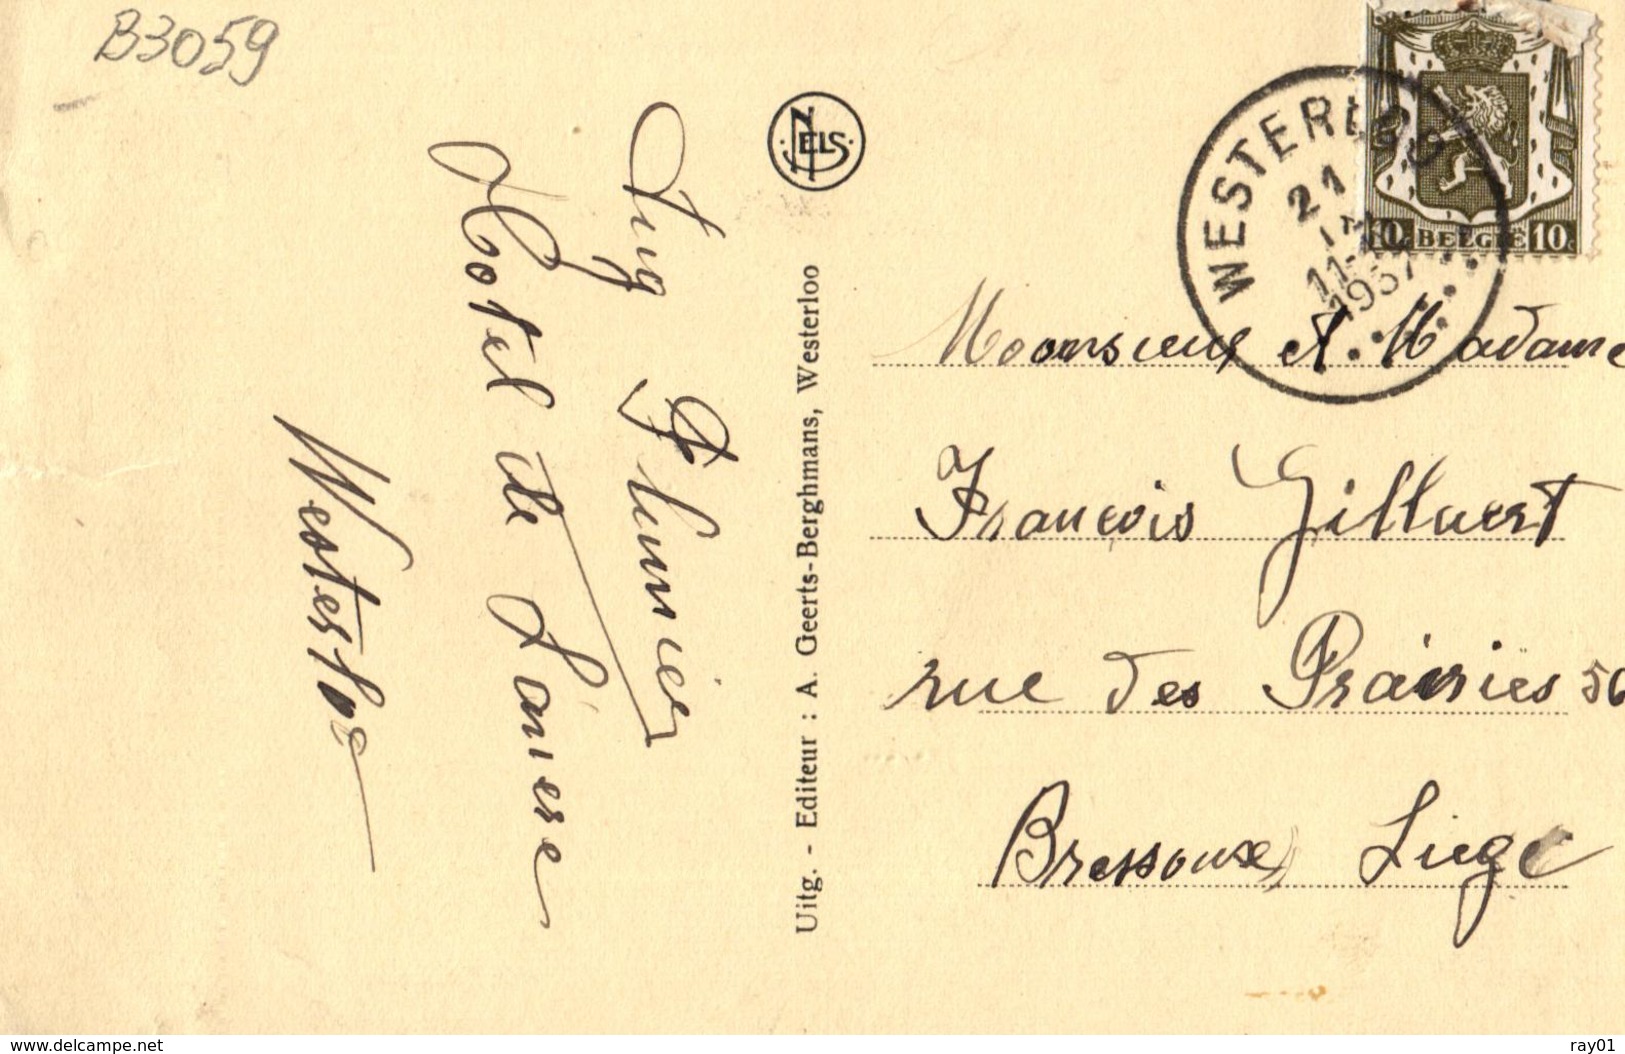 B3059
Aug Plumier
Hotel de
Westerloo
NELS
Uitg. - Editeur : A. Geerts-Berghmans, Westerloo
WESTERLOO
21
11
1937
10 BELGIË 10c
Moonsieur et Madame
François Gilluert
rue des Prairies 56
Bressoux Liege
www.delcampe.net
ray01